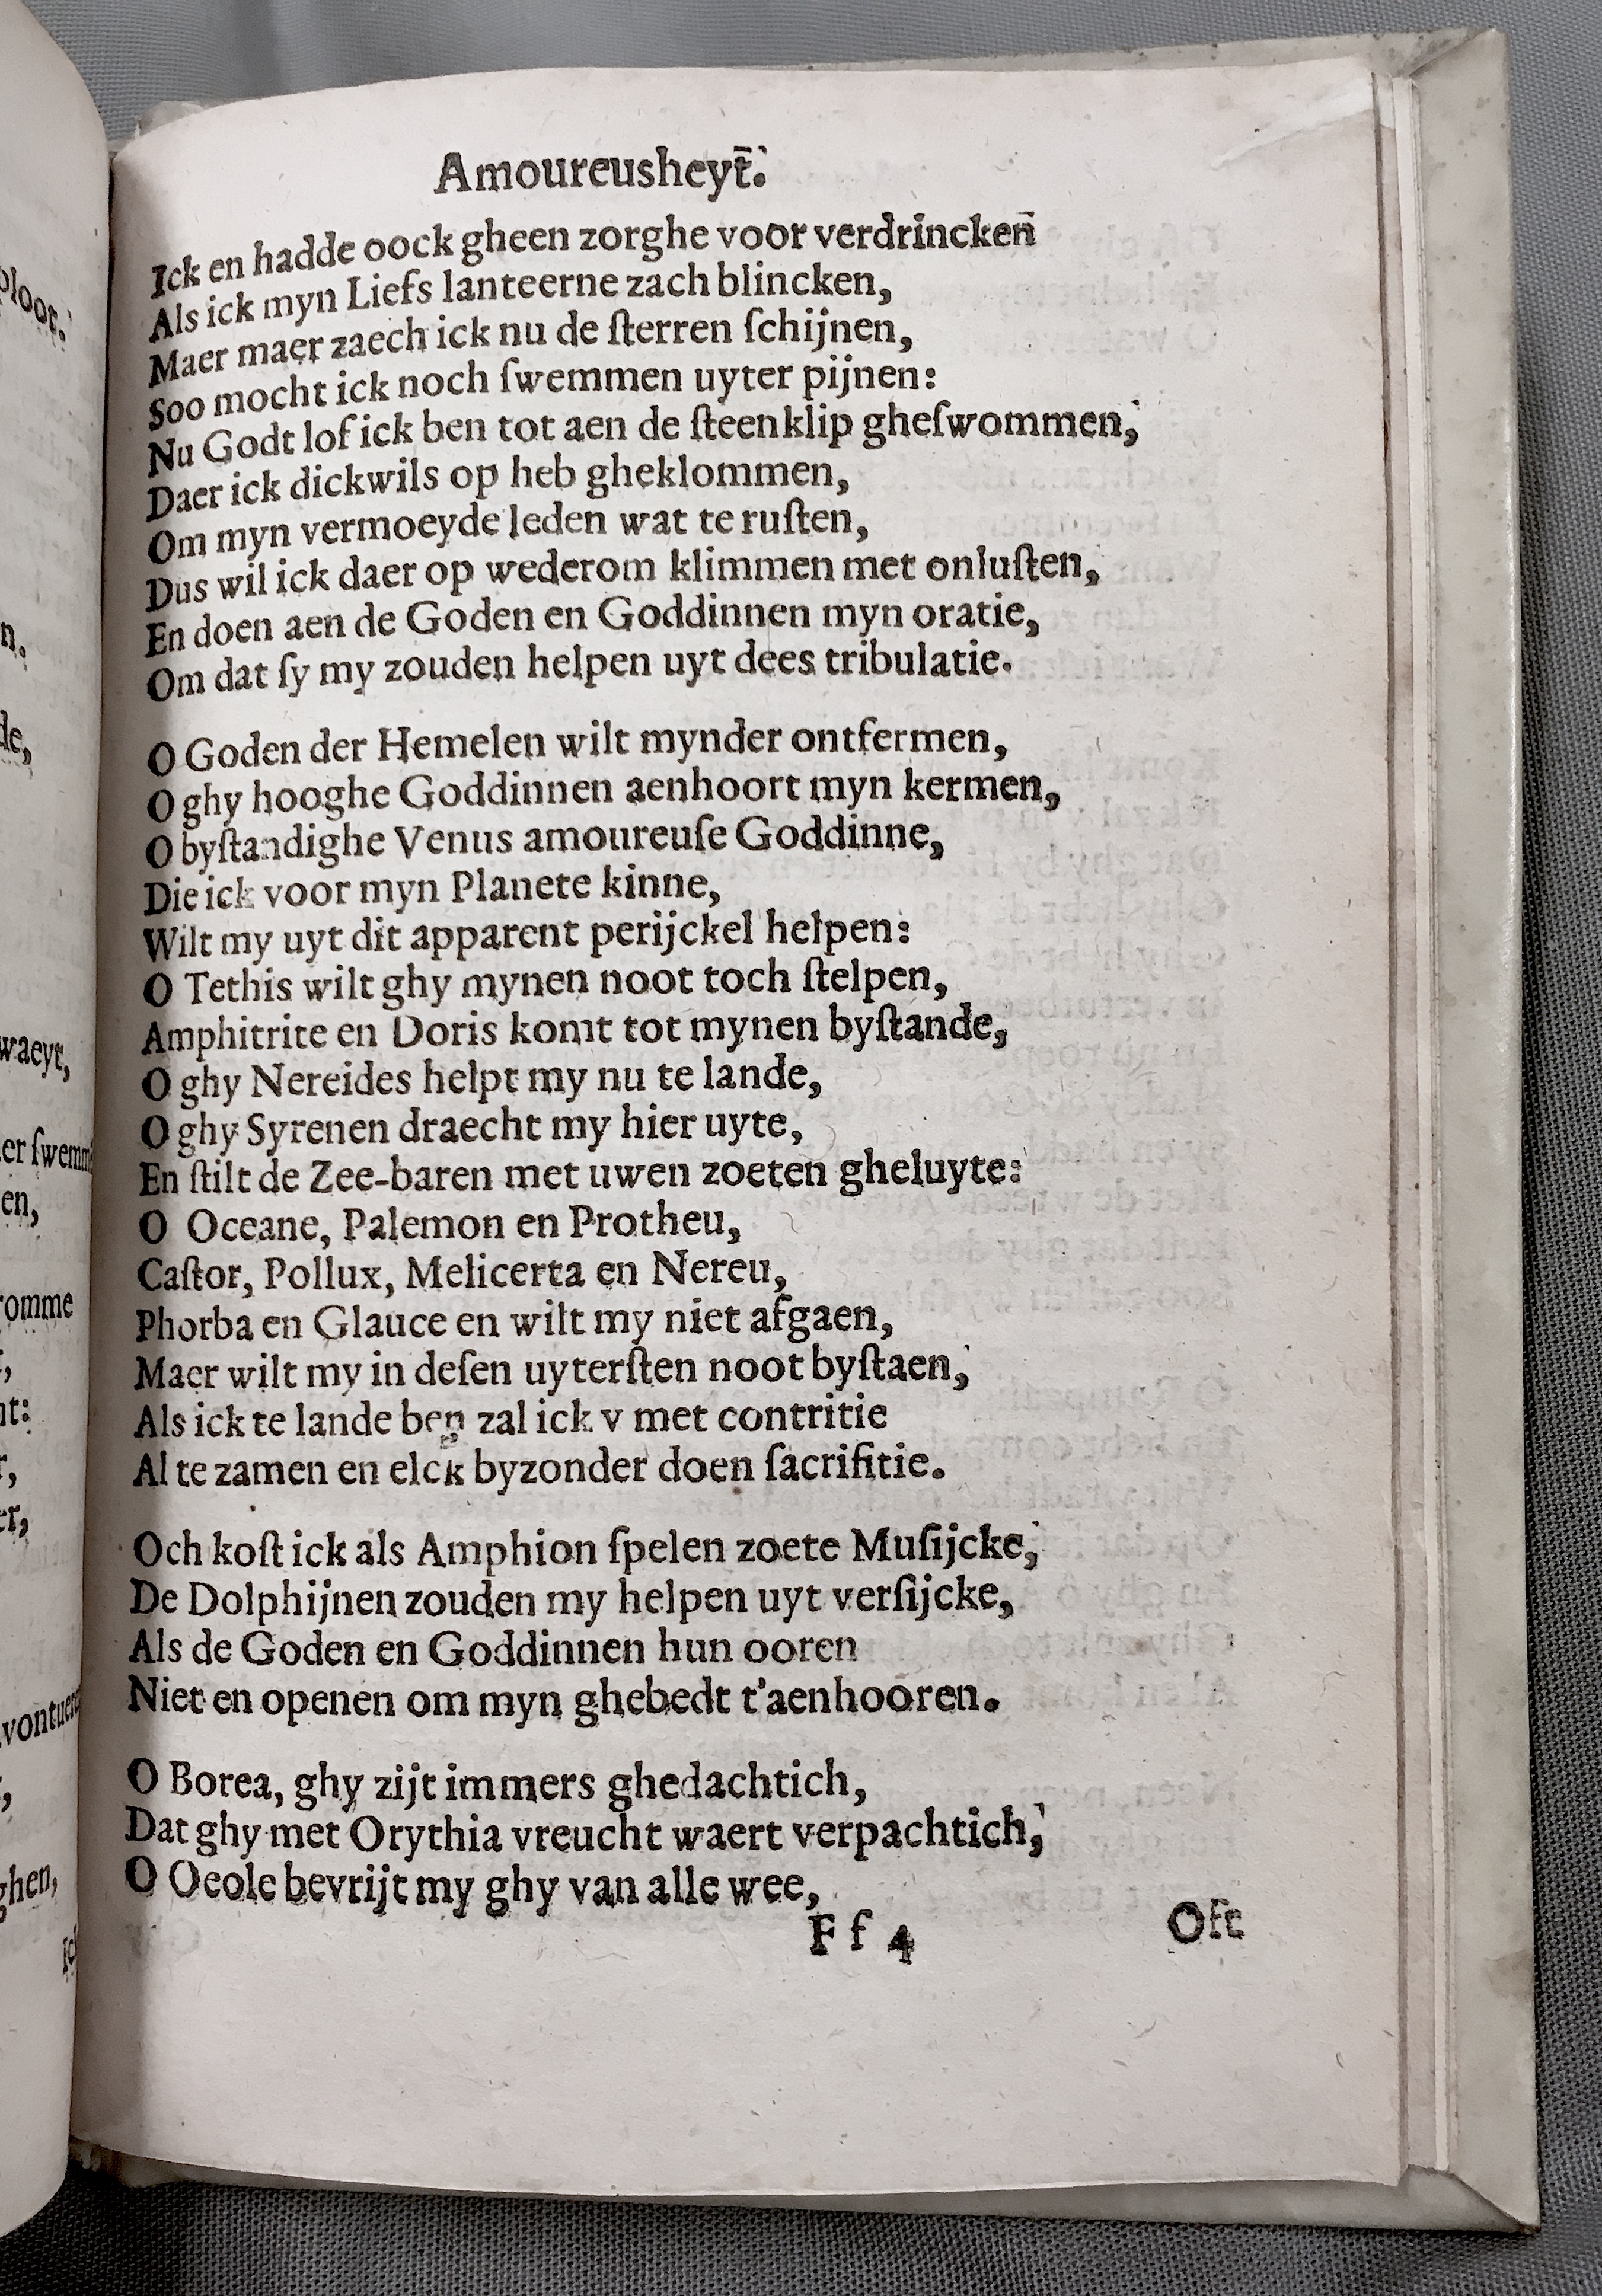 Amoureusheyt.
Ick en hadde oock gheen zorghe voor verdrincken
Als ick myn Liefs lanteerne zach blincken,
Maer maer zaech ick nu de ſterren ſchijnen,
Soo mocht ick noch ſwemmen uyter pijnen:
Nu Godt lof ick ben tot aen de ſteenklip gheſwommen,
Daer ick dickwils op heb gheklommen,
Om myn vermoeyde leden wat te ruſten,
Dus wil ick daer op wederom klimmen met onluſten,
En doen aen de Goden en Goddinnen myn oratie,
Om dat ſy my zouden helpen uyt dees tribulatie.
O Goden der Hemelen wilt mynder ontfermen,
O ghy hooghe Goddinnen aenhoort myn kermen,
O byſtandighe Venus amoureuſe Goddinne,
Die ick voor myn Planete kinne,
Wilt my uyt dit apparent perijckel helpen:
O Tethis wilt ghy mynen noot toch ſtelpen,
Amphitrite en Doris komt tot mynen byſtande,
O ghy Nereides helpt my nu te lande,
O ghy Syrenen draecht my hier uyte,
En ſtilt de Zee-baren met uwen zoeten gheluyte:
O Oceane, Palemon en Protheu,
Caſtor, Pollux, Melicerta en Nereu,
Phorba en Glauce en wilt my niet afgaen,
Maer wilt my in deſen uyterſten noot byſtaen,
Als ick te lande ben zal ick v met contritie
Al te zamen en elck byzonder doen ſacrifitie.
Och koſt ick als Amphion ſpelen zoete Muſijcke,
De Dolphijnen zouden my helpen uyt verſijcke,
Als de Goden en Goddinnen hun ooren
Niet en openen om myn ghebedt t'aenhooren.
O Borea, ghy zijt immers ghedachtich,
Dat ghy met Orythia vreucht waert verpachtich,
O Oeole bevrijt my ghy van alle wee,
Ff 4 Oft